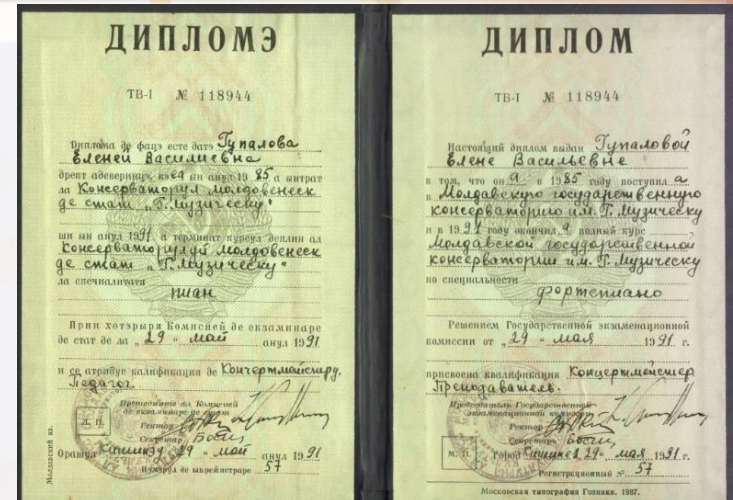 ДИПЛОМЭ
ТВ-I № 118944
Диплома де фацэ есте датэ Гупалова
Еленей Василиевна
дрепт адеверинцэ кэ еа ын анул 1985 а ынтрат
ла Консерваторул Молдовенеск
де стат „Г. Музическу"
ши ын анул 1991 а терминат курсул деплин ал
Консерваторулуй Молдовенеск
де стат „Г. Музическу"
ла специалитатя
пиан
Прин хотэрыря Комисией де екзаминаре
де стат де ла „29" май анул 1991
и се атрибуе калификация де Концертмайстру.
Педагог.
Президентеле Комисией
де екзаминаре де стат
Ректор
Секретар
Л. П.
Орашул Кишинэу 29 май анул 1991
Нумэрул де ынрежистраре 57
Молдавский яз.
ДИПЛОМ
ТВ-I № 118944
Настоящий диплом выдан Гупаловой
Елене Васильевне
в том, что он а в 1985 году поступил а
в Молдавскую государственную
консерваторию им. Г. Музическу
и в 1991 году окончил а полный курс
Молдавской государственной
консерватории им. Г. Музическу
по специальности
фортепиано
Решением Государственной экзаменационной
комиссии от „29" мая 1991 г.
присвоена квалификация Концертмейстер
Преподаватель.
Председатель Государственной
экзаменационной комиссии
Ректор
Секретарь
М. П. Город Кишинев 29 мая 1991 г.
Регистрационный № 57
Московская типография Гознака. 1987.